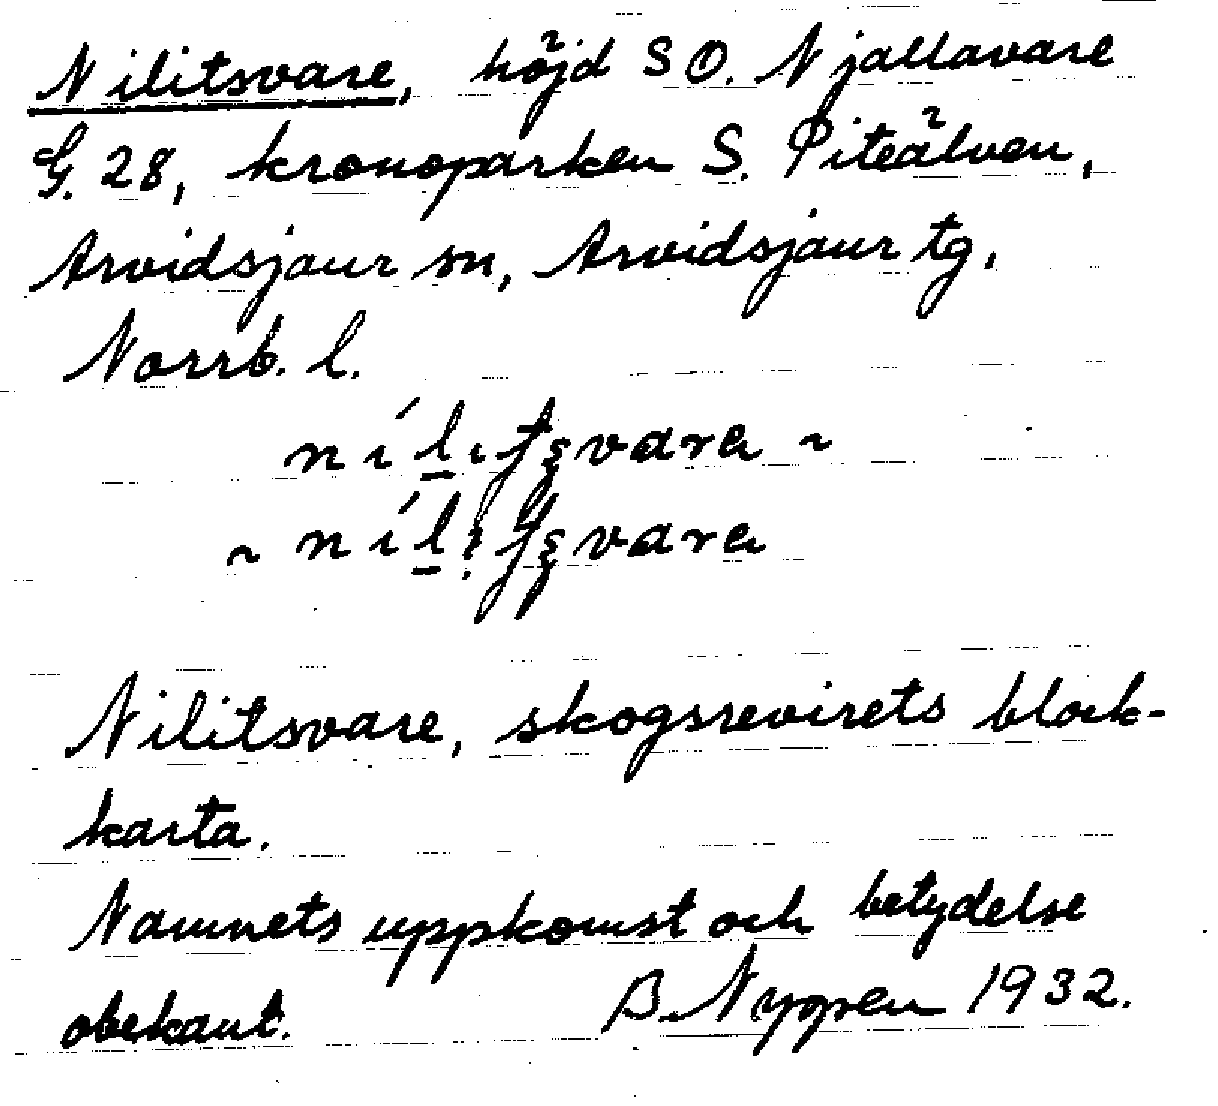 Nilitsvare, höjd SO. Njallavare
G. 28, kronoparken S. Piteälven,
Arvidsjaur sn, Arvidsjaur tg,
Norrb. l.
Nilitsvare, skogsrevirets block-
karta.
Namnets uppkomst och betydelse
obekant. B. Nygren 1932.